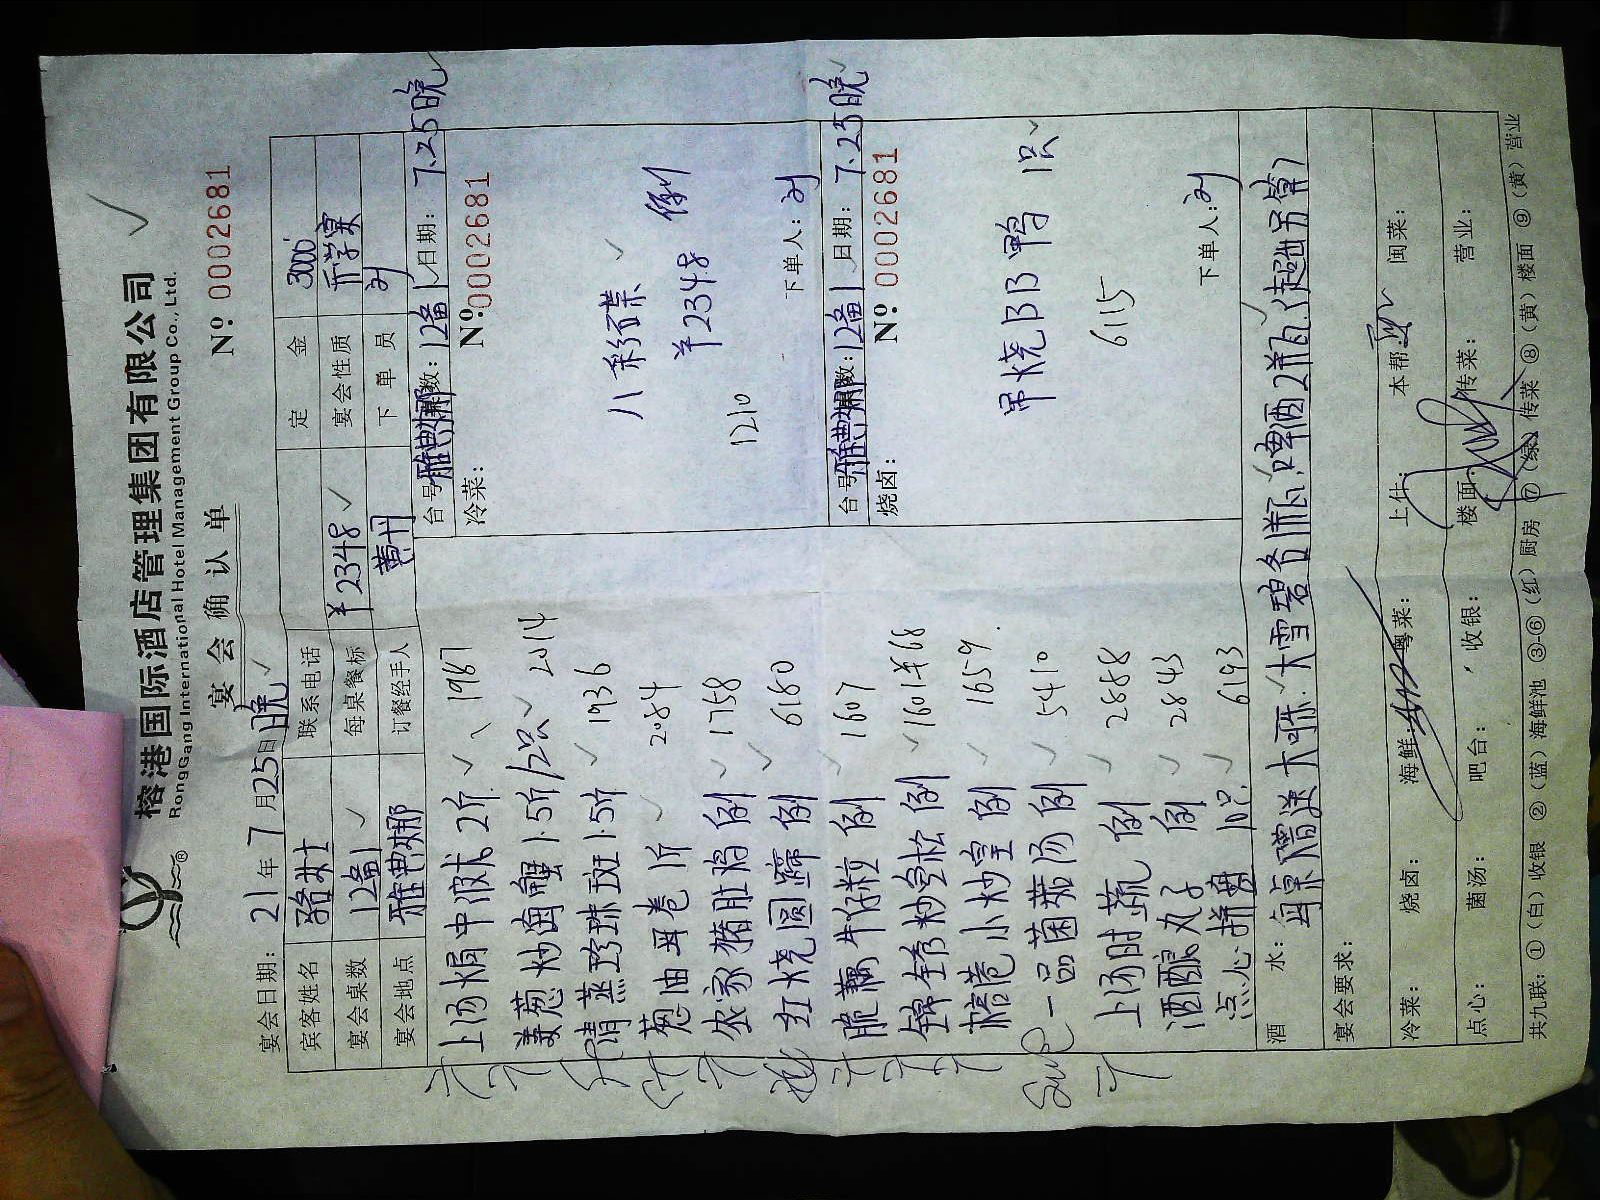 榕港国际酒店管理集团有限公司
RongGang International Hotel Management Group Co., Ltd.
宴会确认单
№ 0002681
宴会日期: 21年7月25日晚
宾客姓名 骆女士 联系电话 定金 3000
宴会桌数 12备1 每桌餐标 ¥2348 宴会性质 升学宴
宴会地点 雅典娜 订餐经手人 黄丹 下单员 刘
上汤焗中波龙 2斤 1987
姜葱炒海蟹 1.5斤/2只 2014
清蒸珍珠斑 1.5斤 1936
葱油耳卷 1斤 2084
农家猪肚鸡 例 1758
红烧圆蹄 例 6180
脆藕牛仔粒 例 1607
锦绣炒宫松 例 1601半68
榕港小炒皇 例 1659
一品菌菇汤 例 5410
上汤时蔬 例 2888
酒酿丸子 例 2843
点心拼盘 10只 6193
台号: 雅典娜 桌数: 12备1 日期: 7.25晚
冷菜:
№ 0002681
八彩碟 例
¥2348
1210
下单人: 刘
台号: 雅典娜 桌数: 12备1 日期: 7.25晚
烧卤:
№ 0002681
吊烧BB鸭 1只
6115
下单人: 刘
酒水: 每桌赠送大可乐、大雪碧各1瓶、啤酒2瓶(超出另算)
宴会要求:
冷菜: 烧卤: 海鲜: 粤菜: 上什: 本帮: 闽菜:
点心: 菌汤: 吧台: 收银: 楼面: 传菜: 营业:
共九联: ①(白)收银 ②(蓝)海鲜池 ③-⑥(红)厨房 ⑦(绿)传菜 ⑧(黄)楼面 ⑨(黄)营业